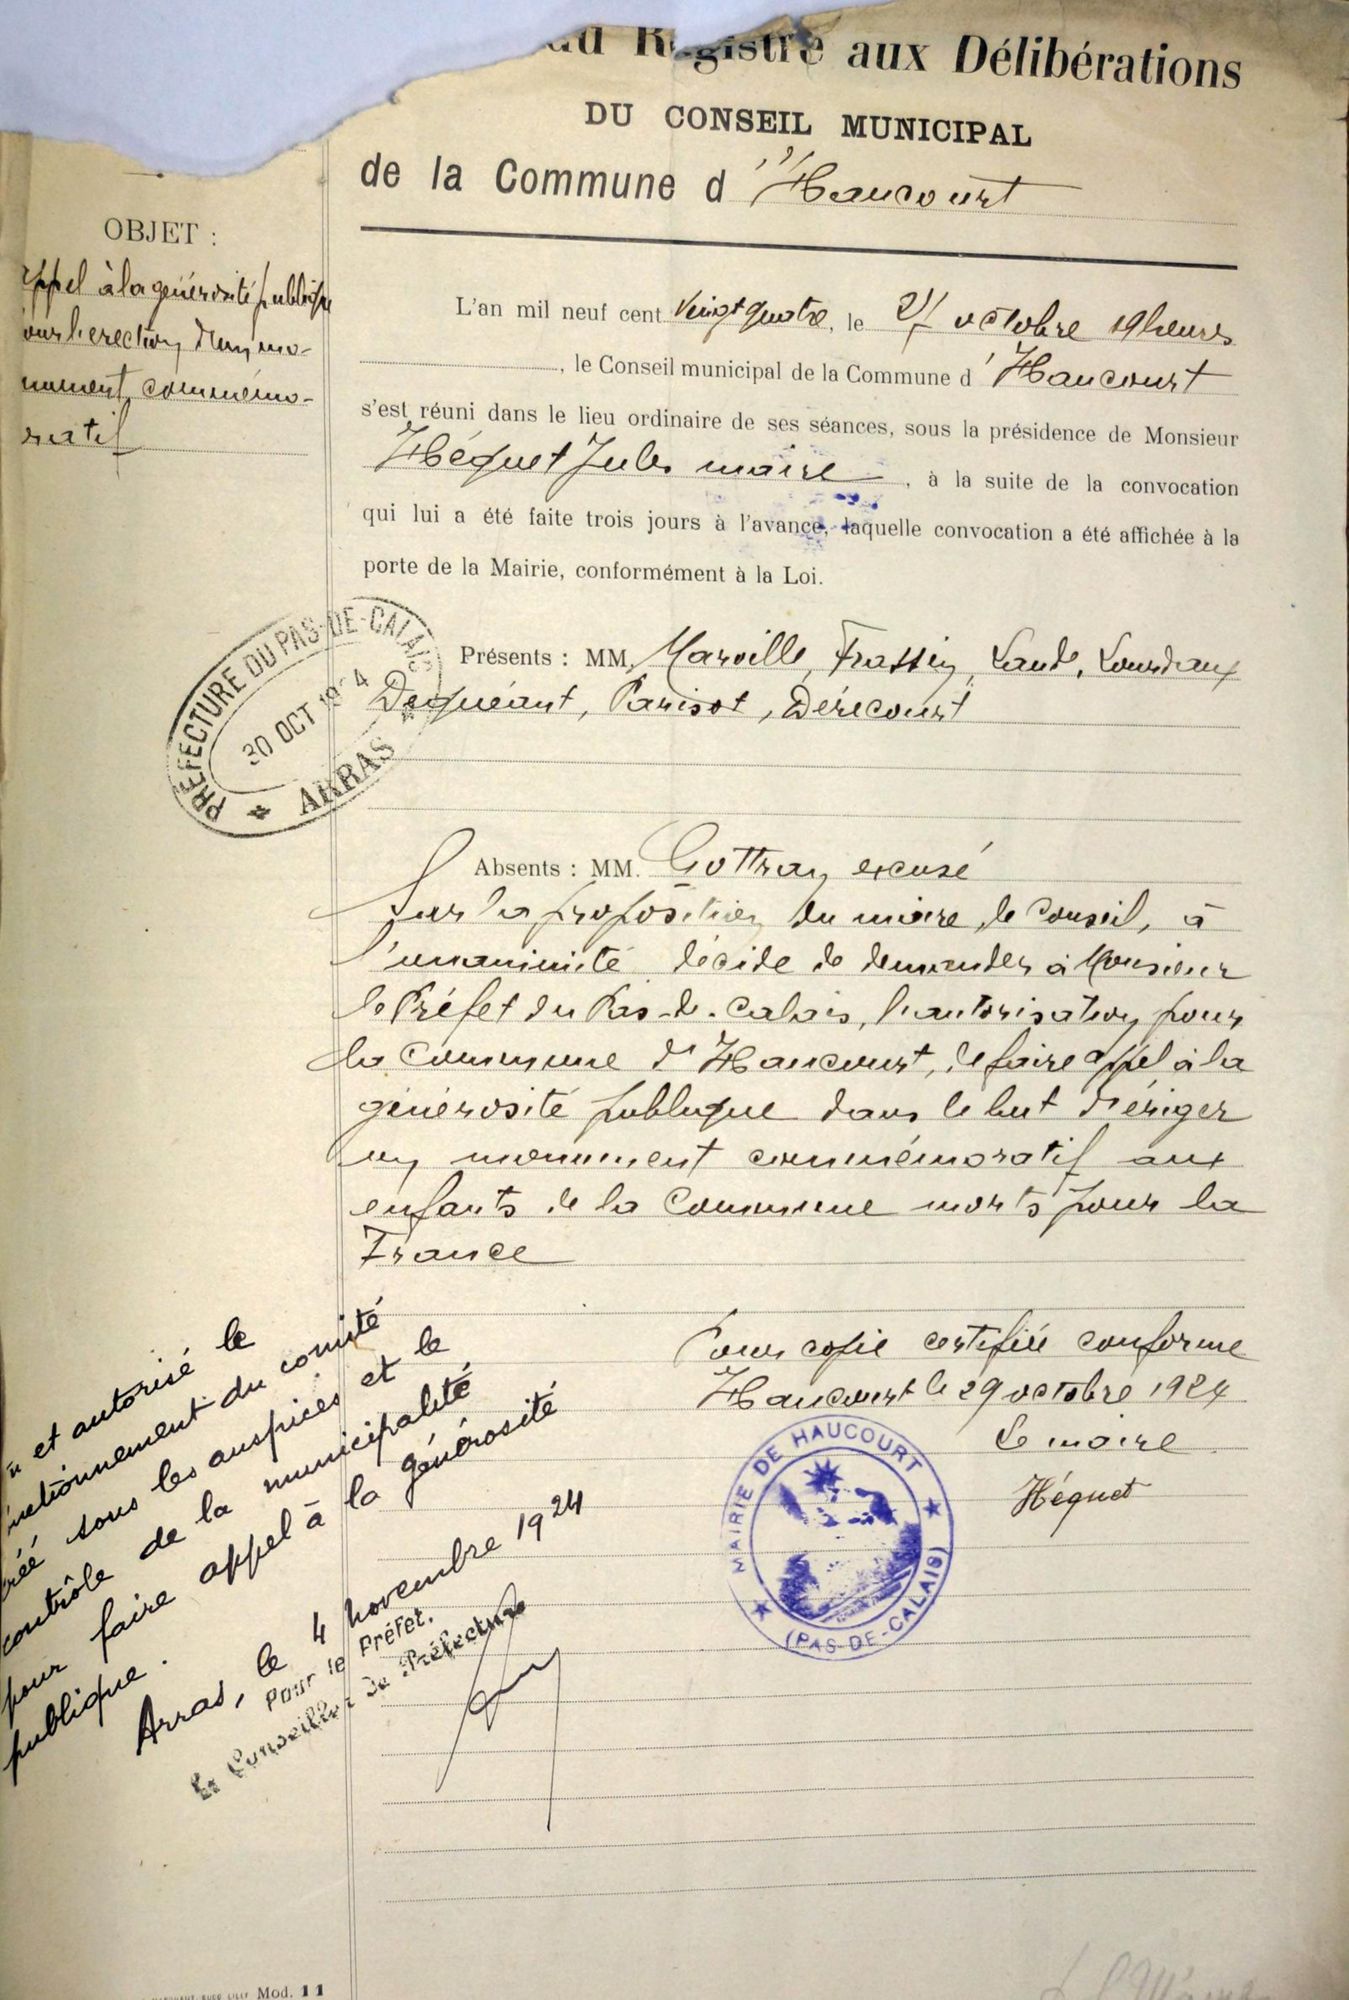 au Registre aux Délibérations
DU CONSEIL MUNICIPAL
de la Commune d'Haucourt
OBJET :
appel à la générosité publique
pour l'érection d'un mo-
nument commémo-
ratif
L'an mil neuf cent vingt quatre, le 27 octobre 19 heures
, le Conseil municipal de la Commune d'Haucourt
s'est réuni dans le lieu ordinaire de ses séances, sous la présidence de Monsieur
Héquet Jules maire, à la suite de la convocation
qui lui a été faite trois jours à l'avance, laquelle convocation a été affichée à la
porte de la Mairie, conformément à la Loi.
PRÉFECTURE DU PAS-DE-CALAIS
30 OCT 1924
ARRAS
Présents : MM. Marville, Frassin, Laude, Lourdaux
Dequéant, Parisot, Dérécourt
Absents : MM. Gottran excusé
Sur la proposition du maire, le Conseil, à
l'unanimité décide de demander à Monsieur
le Préfet du Pas-de-Calais, l'autorisation pour
la Commune d'Haucourt, de faire appel à la
générosité publique dans le but d'ériger
un monument commémoratif aux
enfants de la Commune morts pour la
France
Pour copie certifiée conforme
Haucourt le 29 octobre 1924
Le maire
Héquet
MAIRIE DE HAUCOURT
(PAS-DE-CALAIS)
et autorisé le
nctionnement du comité
réé sous les auspices et le
contrôle de la municipalité
pour faire appel à la générosité
publique.
Arras, le 4 novembre 1924
Pour le Préfet.
Le Conseiller de Préfecture
Mod. 11